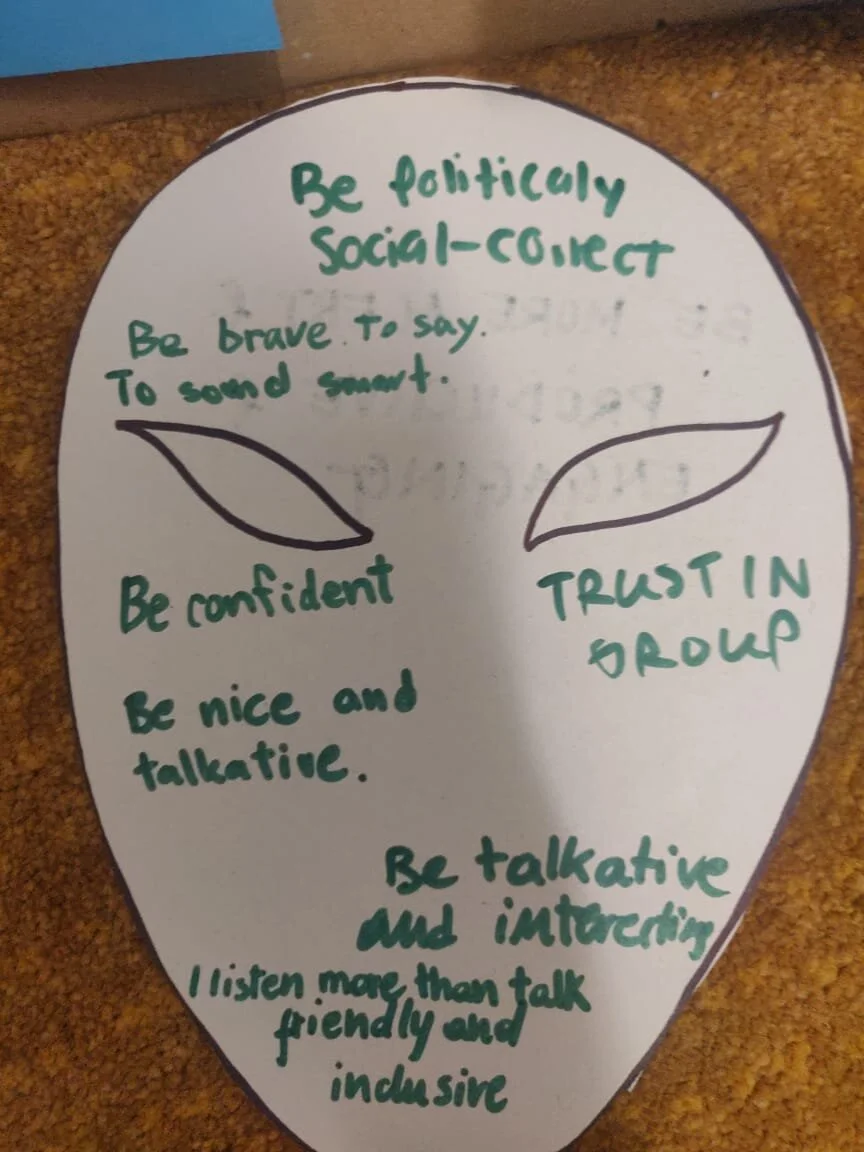 Be politicaly
social-correct
Be brave. To say.
To sound smart.
Be confident
TRUST IN
GROUP
Be nice and
talkative.
Be talkative
and interesting
I listen more than talk
friendly and
inclusive
BE MORE
PRODUCTIVE
ENGAGING